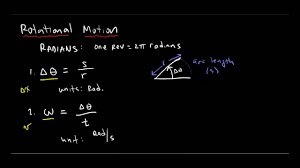 Rotational Motion
RADIANS: one rev = 2π radians
1. Δθ = s/r
Δx
units: Rad.
r
Δθ
arc length (s)
2. ω = Δθ/t
v
unit: Rad/s